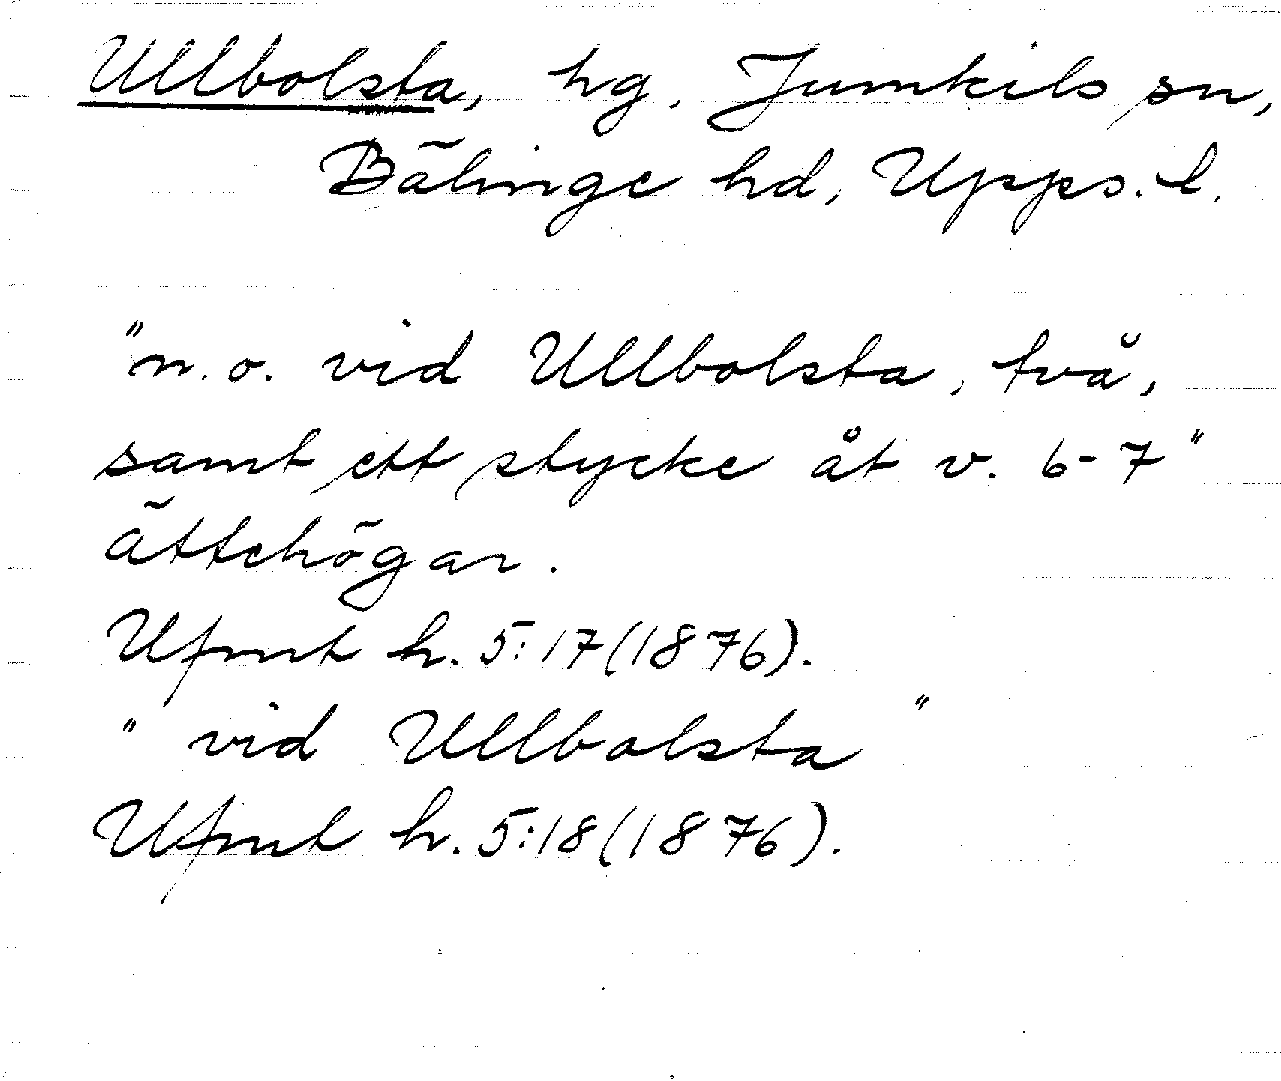 Ullbolsta, hg. Jumkils sn,
Bälinge hd, Upps. l.
"n. o. vid Ullbolsta, två,
samt ett stycke åt v. 6-7"
ättehögar.
Ufmt h. 5:17(1876).
" vid Ullbolsta "
Ufmt h. 5:18(1876).